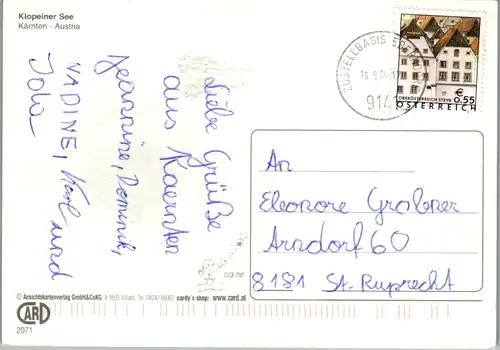 Klopeiner See
Kärnten - Austria
Liebe Grüße
aus Kaernten
Jeannine, Dominik,
NADINE, Karl und
Julia
ZUSTELLBASIS
914
€ 0.55
OBERÖSTERREICH STEYR
ÖSTERREICH
An
Eleonore Grabner
Arndorf 60
8181 St. Ruprecht
click me!
© Ansichtskartenverlag GmbH&CoKG A 9500 Villach, Tel. 04242 56002 cardy's shop: www.card.at
CARD
2071